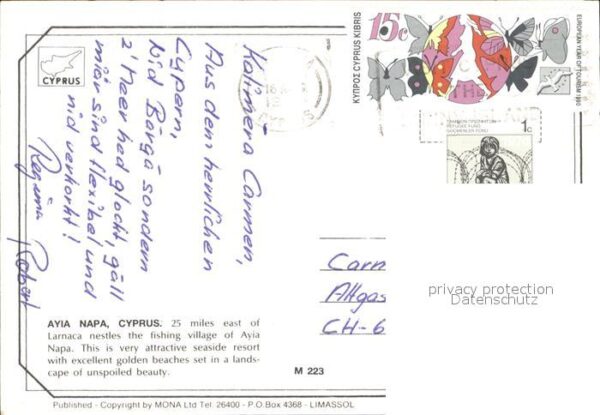 Kalimera Carmen,
Aus dem herrlichen
Cypern,
Nid Bärgä sondern
z'Meer hed glockt, gäll
miär sind flexibel und
nid verkorkt!
Regina Robert
CYPRUS
15c
ΚΥΠΡΟΣ CYPRUS KIBRIS
EUROPEAN YEAR OF TOURISM 1990
1c
REFUGEE FUND
GÖÇMENLER FONU
Carm
Altgas
CH-6
privacy protection
Datenschutz
AYIA NAPA, CYPRUS. 25 miles east of
Larnaca nestles the fishing village of Ayia
Napa. This is very attractive seaside resort
with excellent golden beaches set in a lands-
cape of unspoiled beauty.
M 223
Published - Copyright by MONA Ltd Tel. 26400 - P.O.Box 4368 - LIMASSOL